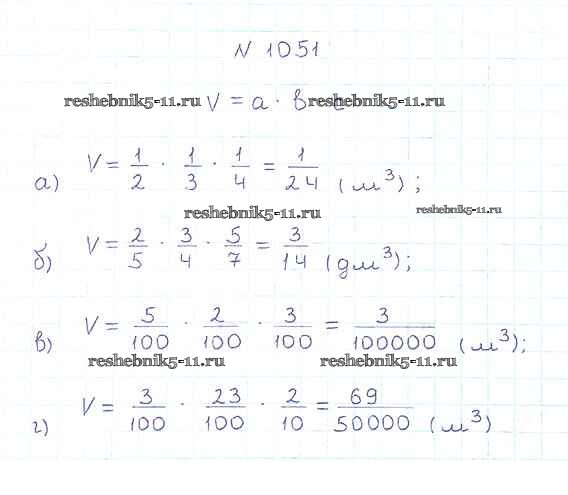 N 1051
reshebnik5-11.ru V = a · в reshebnik5-11.ru
а) V = 1/2 · 1/3 · 1/4 = 1/24 (м³);
reshebnik5-11.ru reshebnik5-11.ru
б) V = 2/5 · 3/4 · 5/7 = 3/14 (дм³);
в) V = 5/100 · 2/100 · 3/100 = 3/100000 (м³);
reshebnik5-11.ru reshebnik5-11.ru
г) V = 3/100 · 23/100 · 2/10 = 69/50000 (м³)